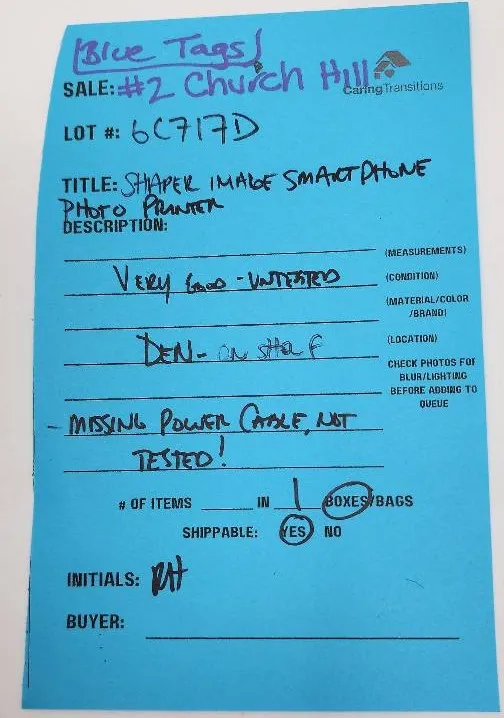 [Blue Tags]
SALE: #2 Church Hill
CaringTransitions
LOT #: 6C717D
TITLE: SHAPER IMAGE SMARTPHONE
PHOTO PRINTER
DESCRIPTION:
(MEASUREMENTS)
VERY GOOD - UNTESTED (CONDITION)
(MATERIAL/COLOR
/BRAND)
DEN - ON SHELF (LOCATION)
CHECK PHOTOS FOR
BLUR/LIGHTING
BEFORE ADDING TO
QUEUE
- MISSING POWER CABLE, NOT
TESTED!
# OF ITEMS ____ IN 1 BOXES/BAGS
SHIPPABLE: YES NO
INITIALS: RH
BUYER: